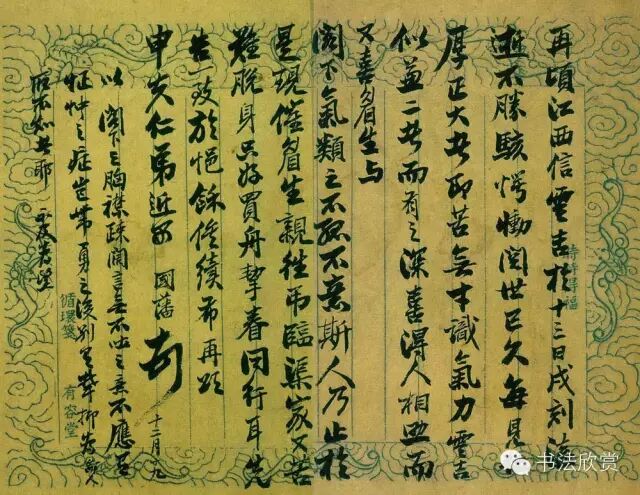 再頃江西信雲吉於十三日戌刻
逝不勝駭愕慟閱世已久每見
厚正大者即苦無才識氣力雲吉
似兼二者而有之深喜得人相與而
又喜眉生與
閣下氣類之不孤不意斯人乃止於
是現催眉生親往弔臨渠家又苦
難脫身只好買舟挈眷同行耳先
告一致於悒餘俟續布再頌
申夫仁弟近安 國藩 十二月 九
以閣下之胸襟疎闊言無不中之
怔忡之症豈帶勇之後別有
所不知者耶
循理箋
有容堂
书法欣赏